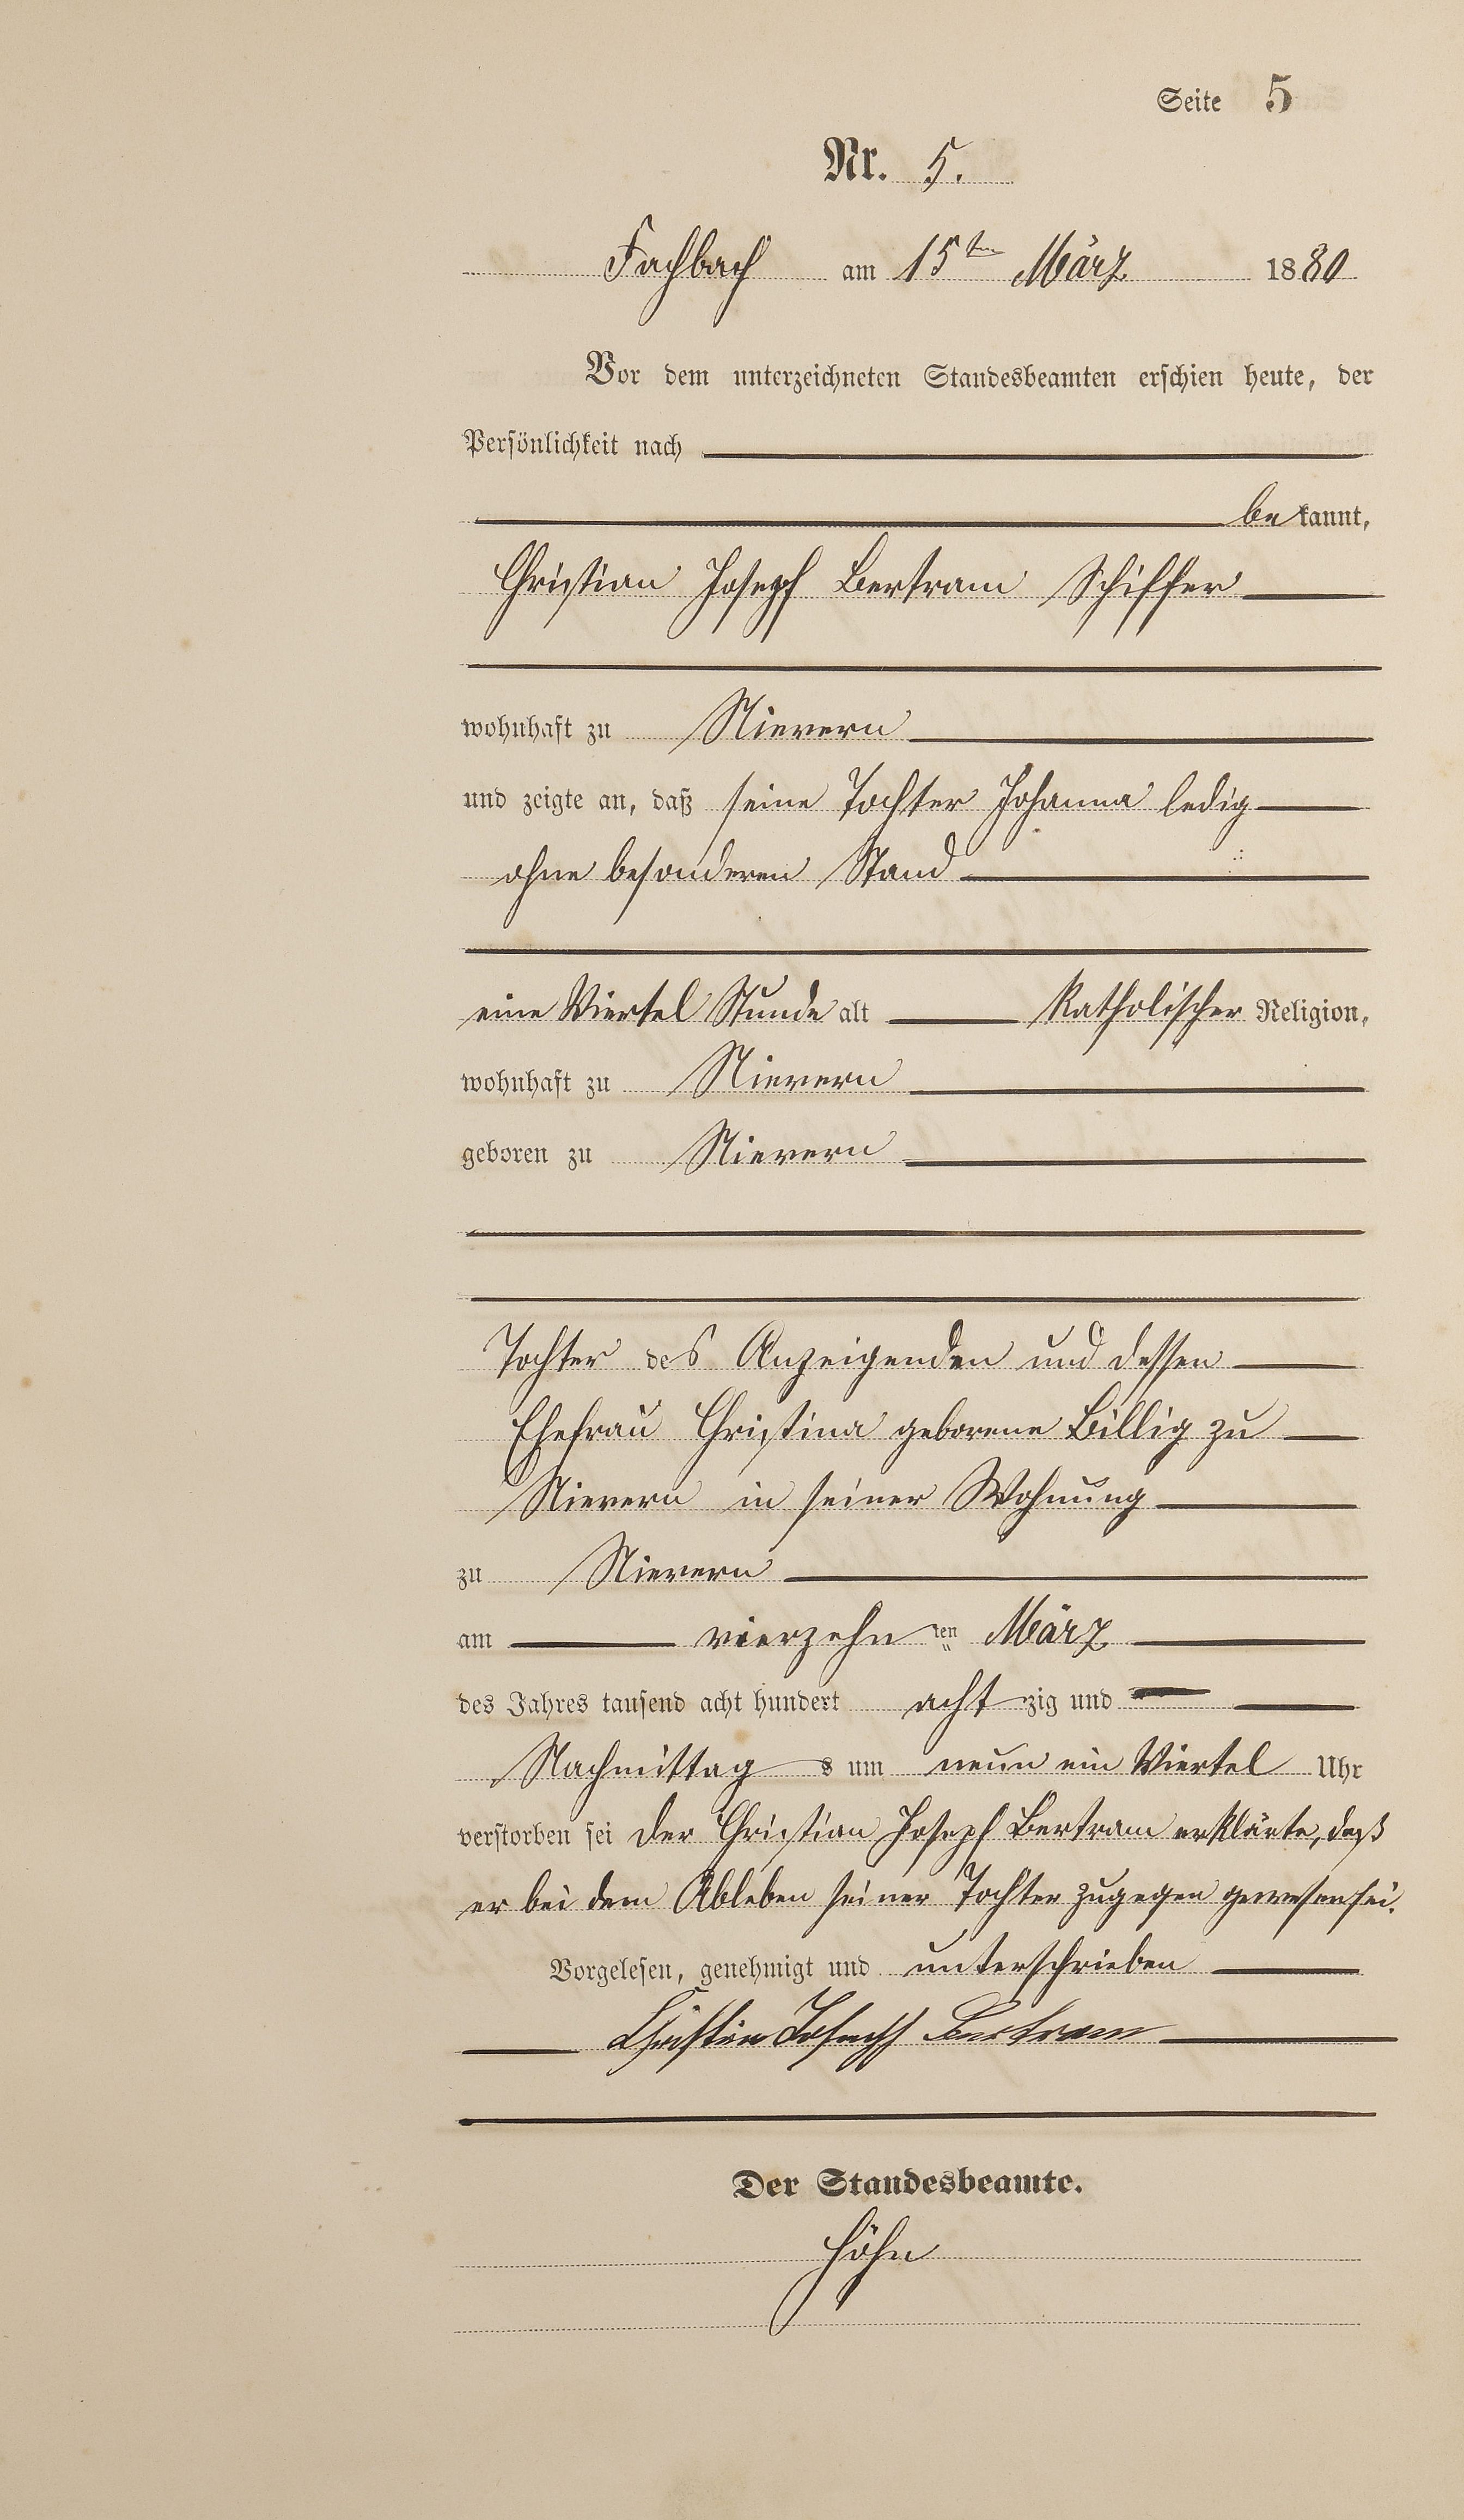 Seite 5
Nr. 5.
Fachbach am 15ten März 1880
Vor dem unterzeichneten Standesbeamten erschien heute, der
Persönlichkeit nach
bekannt,
Christian Joseph Bertram Schiffer
wohnhaft zu Nievern
und zeigte an, daß seine Tochter Johanna ledig
ohne besonderen Stand
eine Viertel Stunde alt Katholischer Religion,
wohnhaft zu Nievern
geboren zu Nievern
Tochter des Anzeigenden und dessen
Ehefrau Christina geborene Billig zu
Nievern in seiner Wohnung
zu Nievern
am vierzehnten März
des Jahres tausend acht hundert achtzig und
Nachmittags um neun ein Viertel Uhr
verstorben sei der Christian Joseph Bertram erklärte, daß
er bei dem Ableben seiner Tochter zugegen gewesen sei.
Vorgelesen, genehmigt und unterschrieben
Christian Joseph Bertram
Der Standesbeamte.
Höhn